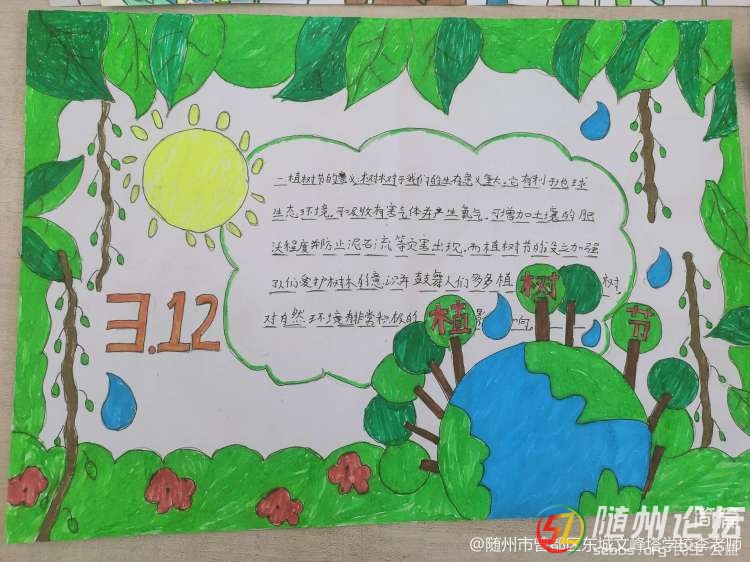 一植树节的意义:树木对于我们的生存意义重大,它有利于地球
生态环境,可吸收有害气体并产生氧气,可增加土壤的肥
沃程度并防止泥石流等灾害出现,而植树节的设立加强
人们爱护树木的意识并鼓舞人们多多植 树
对自然环境有非常积极的 影 响,
3.12
植 树 节
随州论坛
szbbs.org
@随州市曾都区东城文峰塔学校李老师